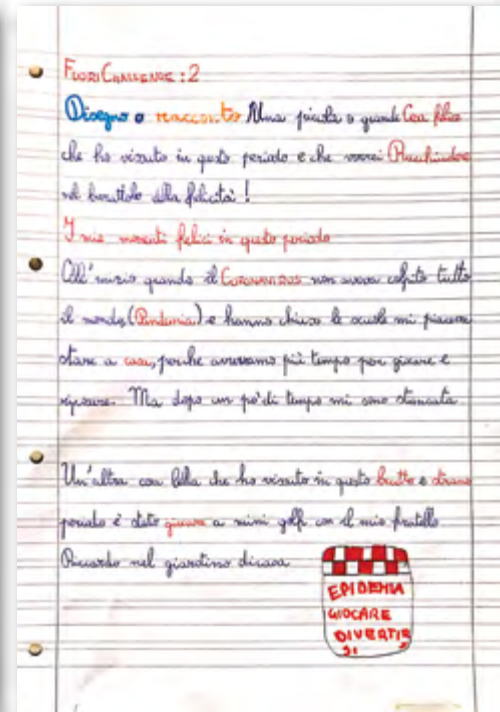 FUORI CHALLENGE: 2
Disegno o racconto Una piccola o grande Cosa felice
che ho vissuto in questo periodo e che vorrei Racchiudere
nel barattolo della felicità!
I miei momenti felici in questo periodo
All'inizio quando il CORONAVIRUS non aveva colpito tutto
il mondo, (Pandemia) e hanno chiuso le scuole mi piaceva
stare a casa, perché avevamo più tempo per giocare e
riposare. Ma dopo un po' di tempo mi sono stancata
Un'altra cosa bella che ho vissuto in questo brutto e strano
periodo è stato giocare a mini golf con il mio fratello
Riccardo nel giardino di casa
EPIDEMIA
GIOCARE
DIVERTIR
SI